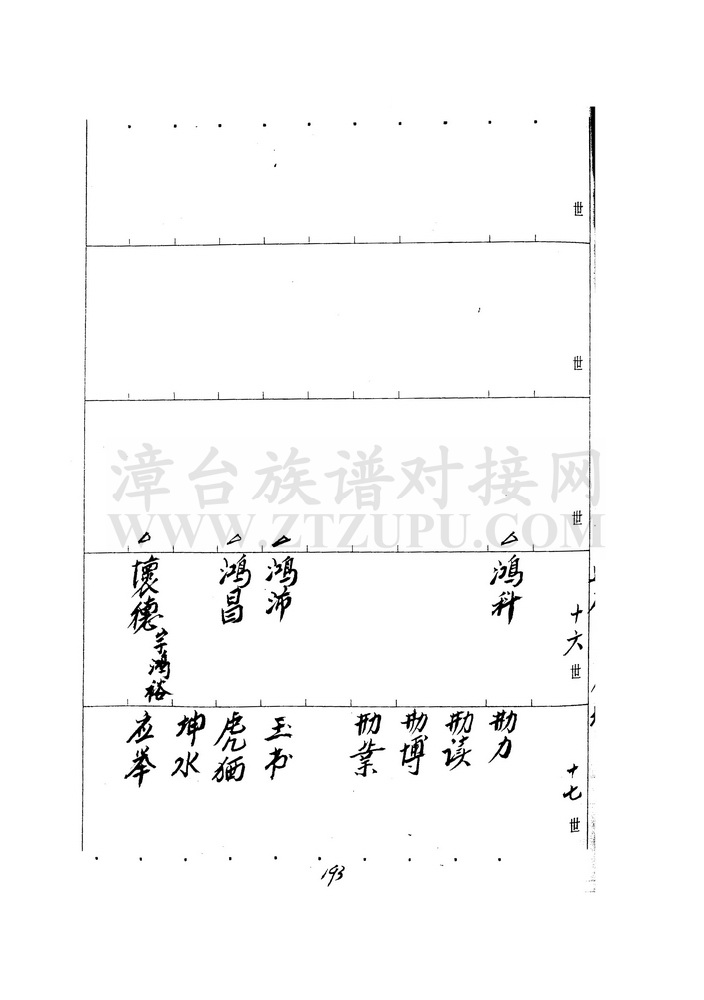 世
世
世
十六世
鸿科
鸿沛
鸿昌
壞德
字鸿裕
十七世
勛力
勛读
勛博
勛業
玉书
虎猶
坤水
应举
漳台族谱对接网
WWW.ZTZUPU.COM
193